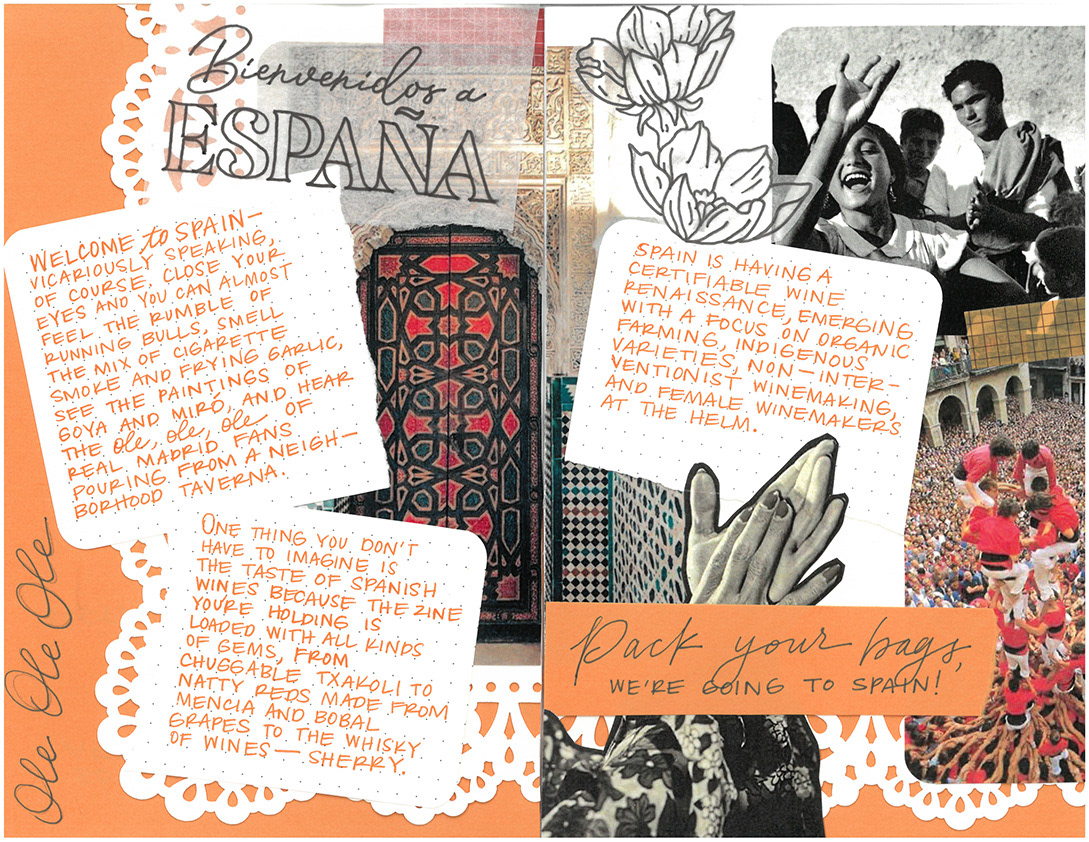 Bienvenidos a
ESPAÑA
WELCOME to SPAIN—
VICARIOUSLY SPEAKING,
OF COURSE. CLOSE YOUR
EYES AND YOU CAN ALMOST
FEEL THE RUMBLE OF
RUNNING BULLS, SMELL
THE MIX OF CIGARETTE
SMOKE AND FRYING GARLIC,
SEE THE PAINTINGS OF
GOYA AND MIRÓ, AND HEAR
THE ole, ole, ole OF
REAL MADRID FANS
POURING FROM A NEIGH—
BORHOOD TAVERNA.
ONE THING YOU DON'T
HAVE TO IMAGINE IS
THE TASTE OF SPANISH
WINES BECAUSE THE ZINE
YOU'RE HOLDING IS
LOADED WITH ALL KINDS
OF GEMS, FROM
CHUGGABLE TXAKOLI TO
NATTY REDS MADE FROM
MENCIA AND BOBAL
GRAPES TO THE WHISKY
OF WINES—SHERRY.
Ole Ole Ole
SPAIN IS HAVING A
CERTIFIABLE WINE
RENAISSANCE, EMERGING
WITH A FOCUS ON ORGANIC
FARMING, INDIGENOUS
VARIETIES, NON-INTER-
VENTIONIST WINEMAKING,
AND FEMALE WINEMAKERS
AT THE HELM.
Pack your bags,
WE'RE GOING TO SPAIN!